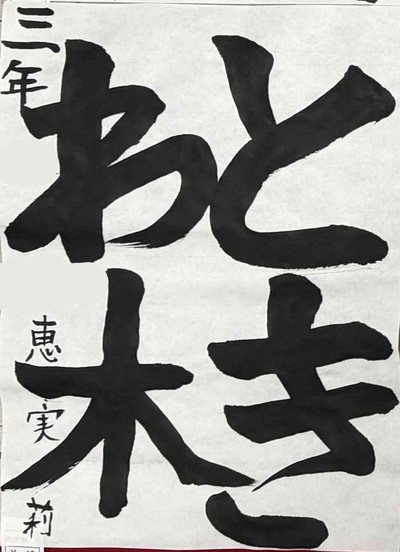 とき
わ木
三年
恵実莉